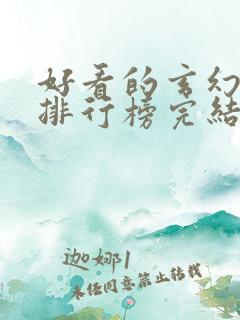 好看的玄幻
排行榜完结
迦娜1
未经同意禁止转载